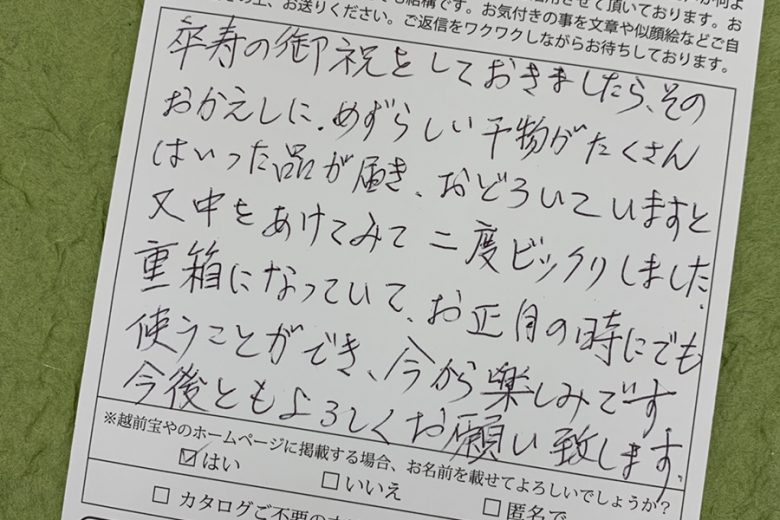 でも結構です。お気付きの事を文章や似顔絵などご自
の上、お送りください。ご返信をワクワクしながらお待ちしております。
卒寿の御祝をしておきましたら、その
おかえしに、めずらしい干物がたくさん
はいった品が届き、おどろいていますと
又中をあけてみて二度ビックリしました。
重箱になっていて、お正月の時にでも
使うことができ、今から楽しみです
今後ともよろしくお願い致します。
※越前宝やのホームページに掲載する場合、お名前を載せてよろしいでしょうか？
☑はい □いいえ □匿名で
□ カタログご不要の